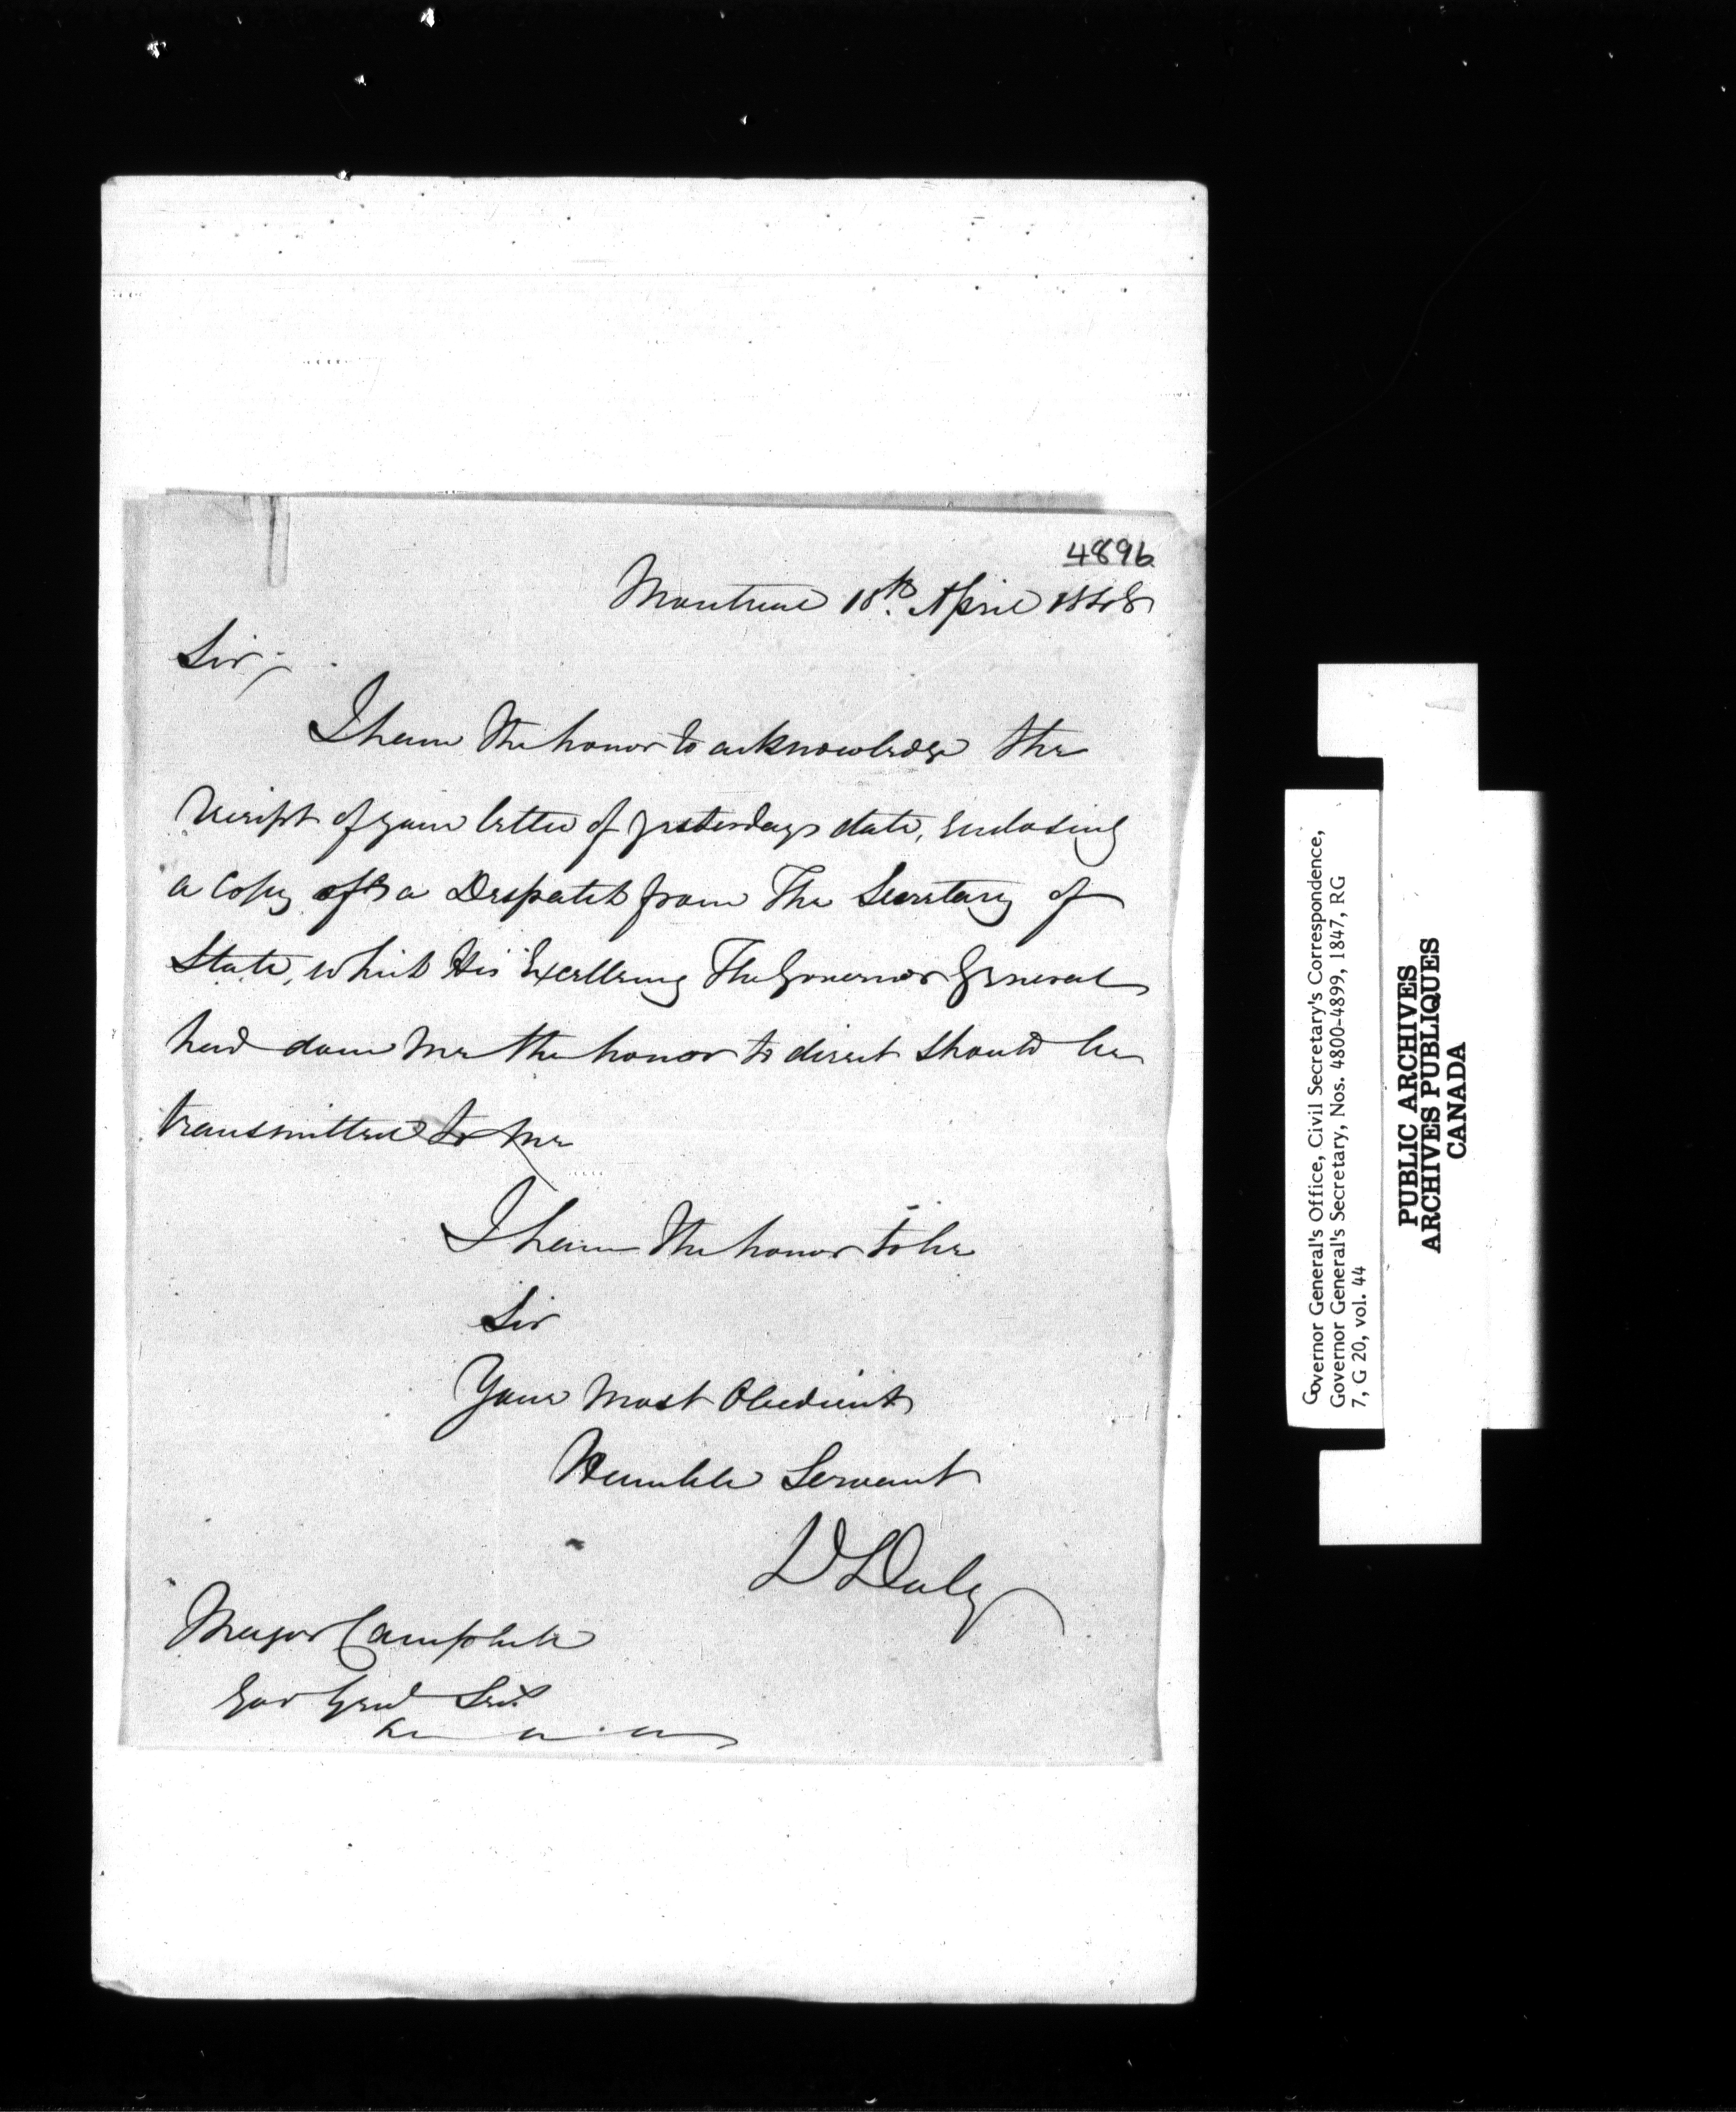 4896
Montreal 18th April 1848
Sir,
I have the honor to acknowledge the
receipt of your letter of yesterdays date, enclosing
a copy of a Despatch from The Secretary of
State, which His Excellency The Governor General
had done me the honor to direct should be
transmitted to me
I have the honor to be
Sir
Your Most Obedient
Humble Servant
D Daly
Major Campbell
Gov Genl Sec
Governor General's Office, Civil Secretary's Correspondence,
Governor General's Secretary, Nos. 4800-4899, 1847, RG
7, G 20, vol. 44
PUBLIC ARCHIVES
ARCHIVES PUBLIQUES
CANADA